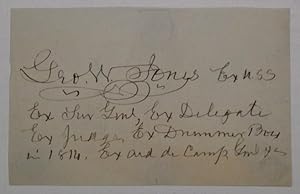 Geo. W. Jones Ex U.S.S
Ex Sur Genl, Ex Delegate
Ex Judge, Ex Drummer Boy
in 1814. Ex aid de Camp, Genl